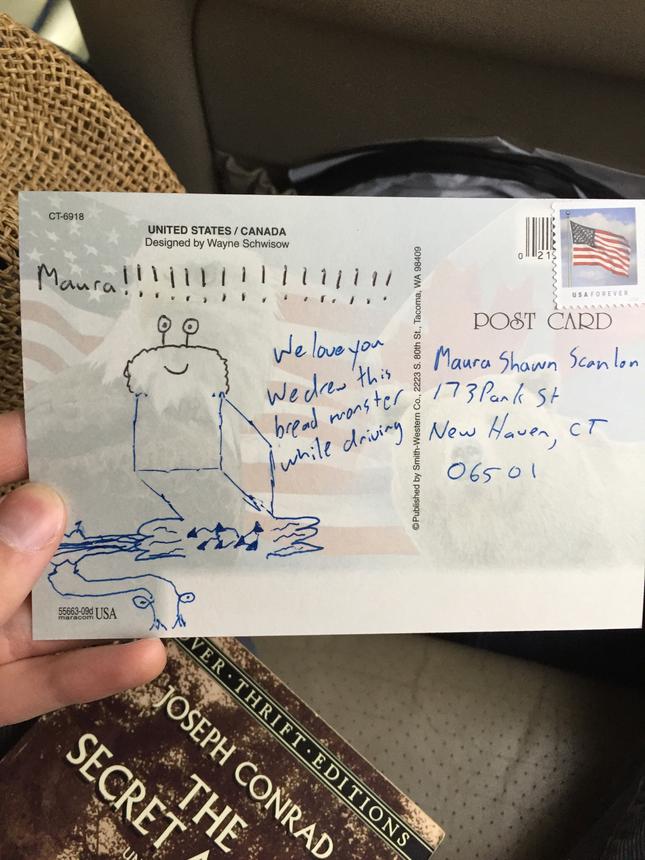 CT-6918
UNITED STATES / CANADA
Designed by Wayne Schwisow
Maura!!!!!!!!!!!!!!!
We love you
We drew this
bread monster
while driving
©Published by Smith-Western Co., 2223 S. 80th St., Tacoma, WA 98409
0 215
USA FOREVER
POST CARD
Maura Shawn Scanlon
173 Park St
New Haven, CT
06501
55663-09d
maracom USA
OVER · THRIFT · EDITIONS
JOSEPH CONRAD
THE
SECRET
UN